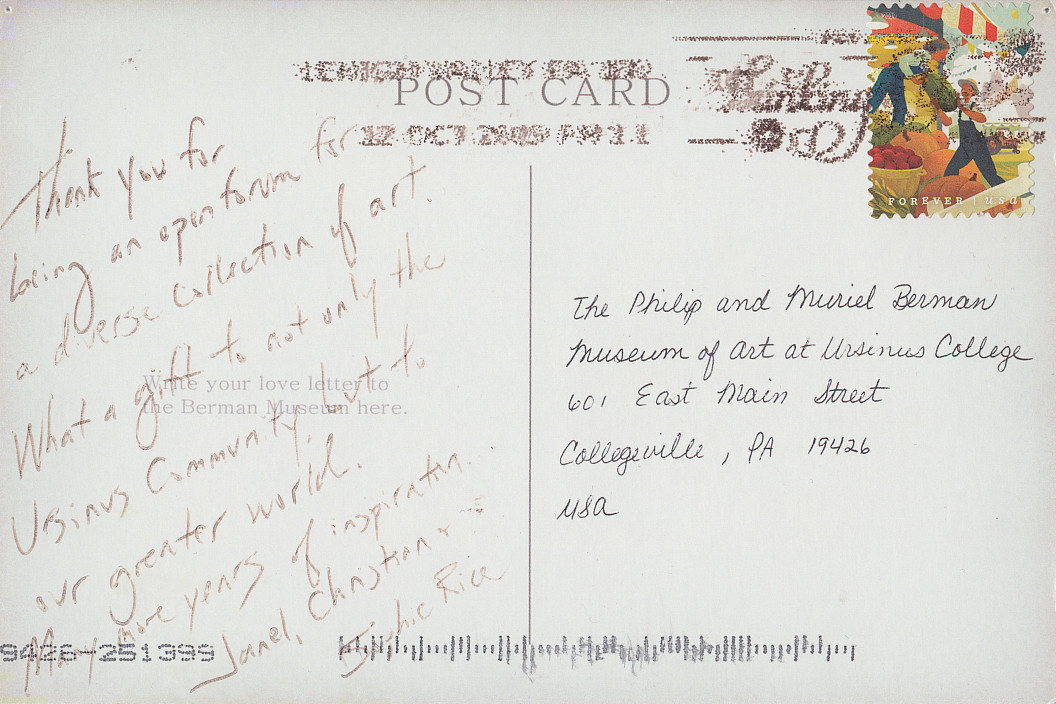 LEHIGH VALLEY PA
POST CARD
12 OCT PM
FOREVER | usa
Thank you for
being an open forum for
a diverse collection of art.
What a gift to not only the
Ursinus Community, but to
our greater world.
Many more years of inspiration...
Janel, Christian &
Rice
Write your love letter to
the Berman Museum here.
The Philip and Muriel Berman
Museum of Art at Ursinus College
601 East Main Street
Collegeville, PA 19426
USA
9426-251399